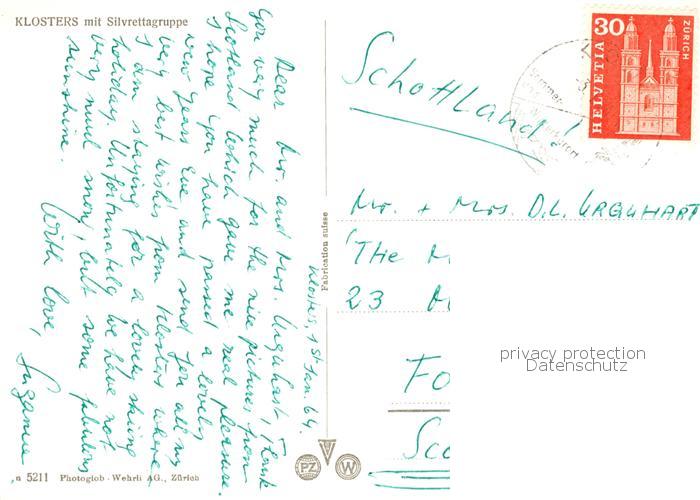 KLOSTERS mit Silvrettagruppe
Klosters, 1st Jan. 64.
Dear Mr. and Mrs. Urquhart, Thank
you very much for the nice pictures from
Scotland which gave me real pleasure.
I hope you have passed a lovely
New Years Eve and send you all my
very best wishes from Klosters where
I am staying for a lovely skiing
holiday. Unfortunately we have not
very much snow, but some fabulous
sunshine.
With love,
Susanne.
Fabrication suisse
5211 Photoglob-Wehrli AG., Zürich
PZ W
30
HELVETIA
ZÜRICH
Schottland!
Mr. + Mrs. D.L. URQUHART
'THE M
23
Fo
Sc
privacy protection
Datenschutz